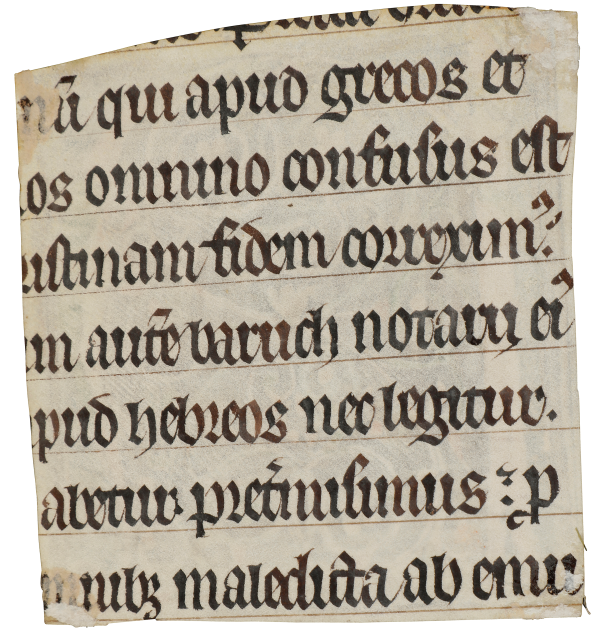 nū qui apud grecos et
nos omnino confusus est
ristinam fidem correximꝰ
um autē baruch notarii eiꝰ
pud hebreos nec legitur.
abetur pret͛misimus : p
mnibꝫ maledicta ab emu